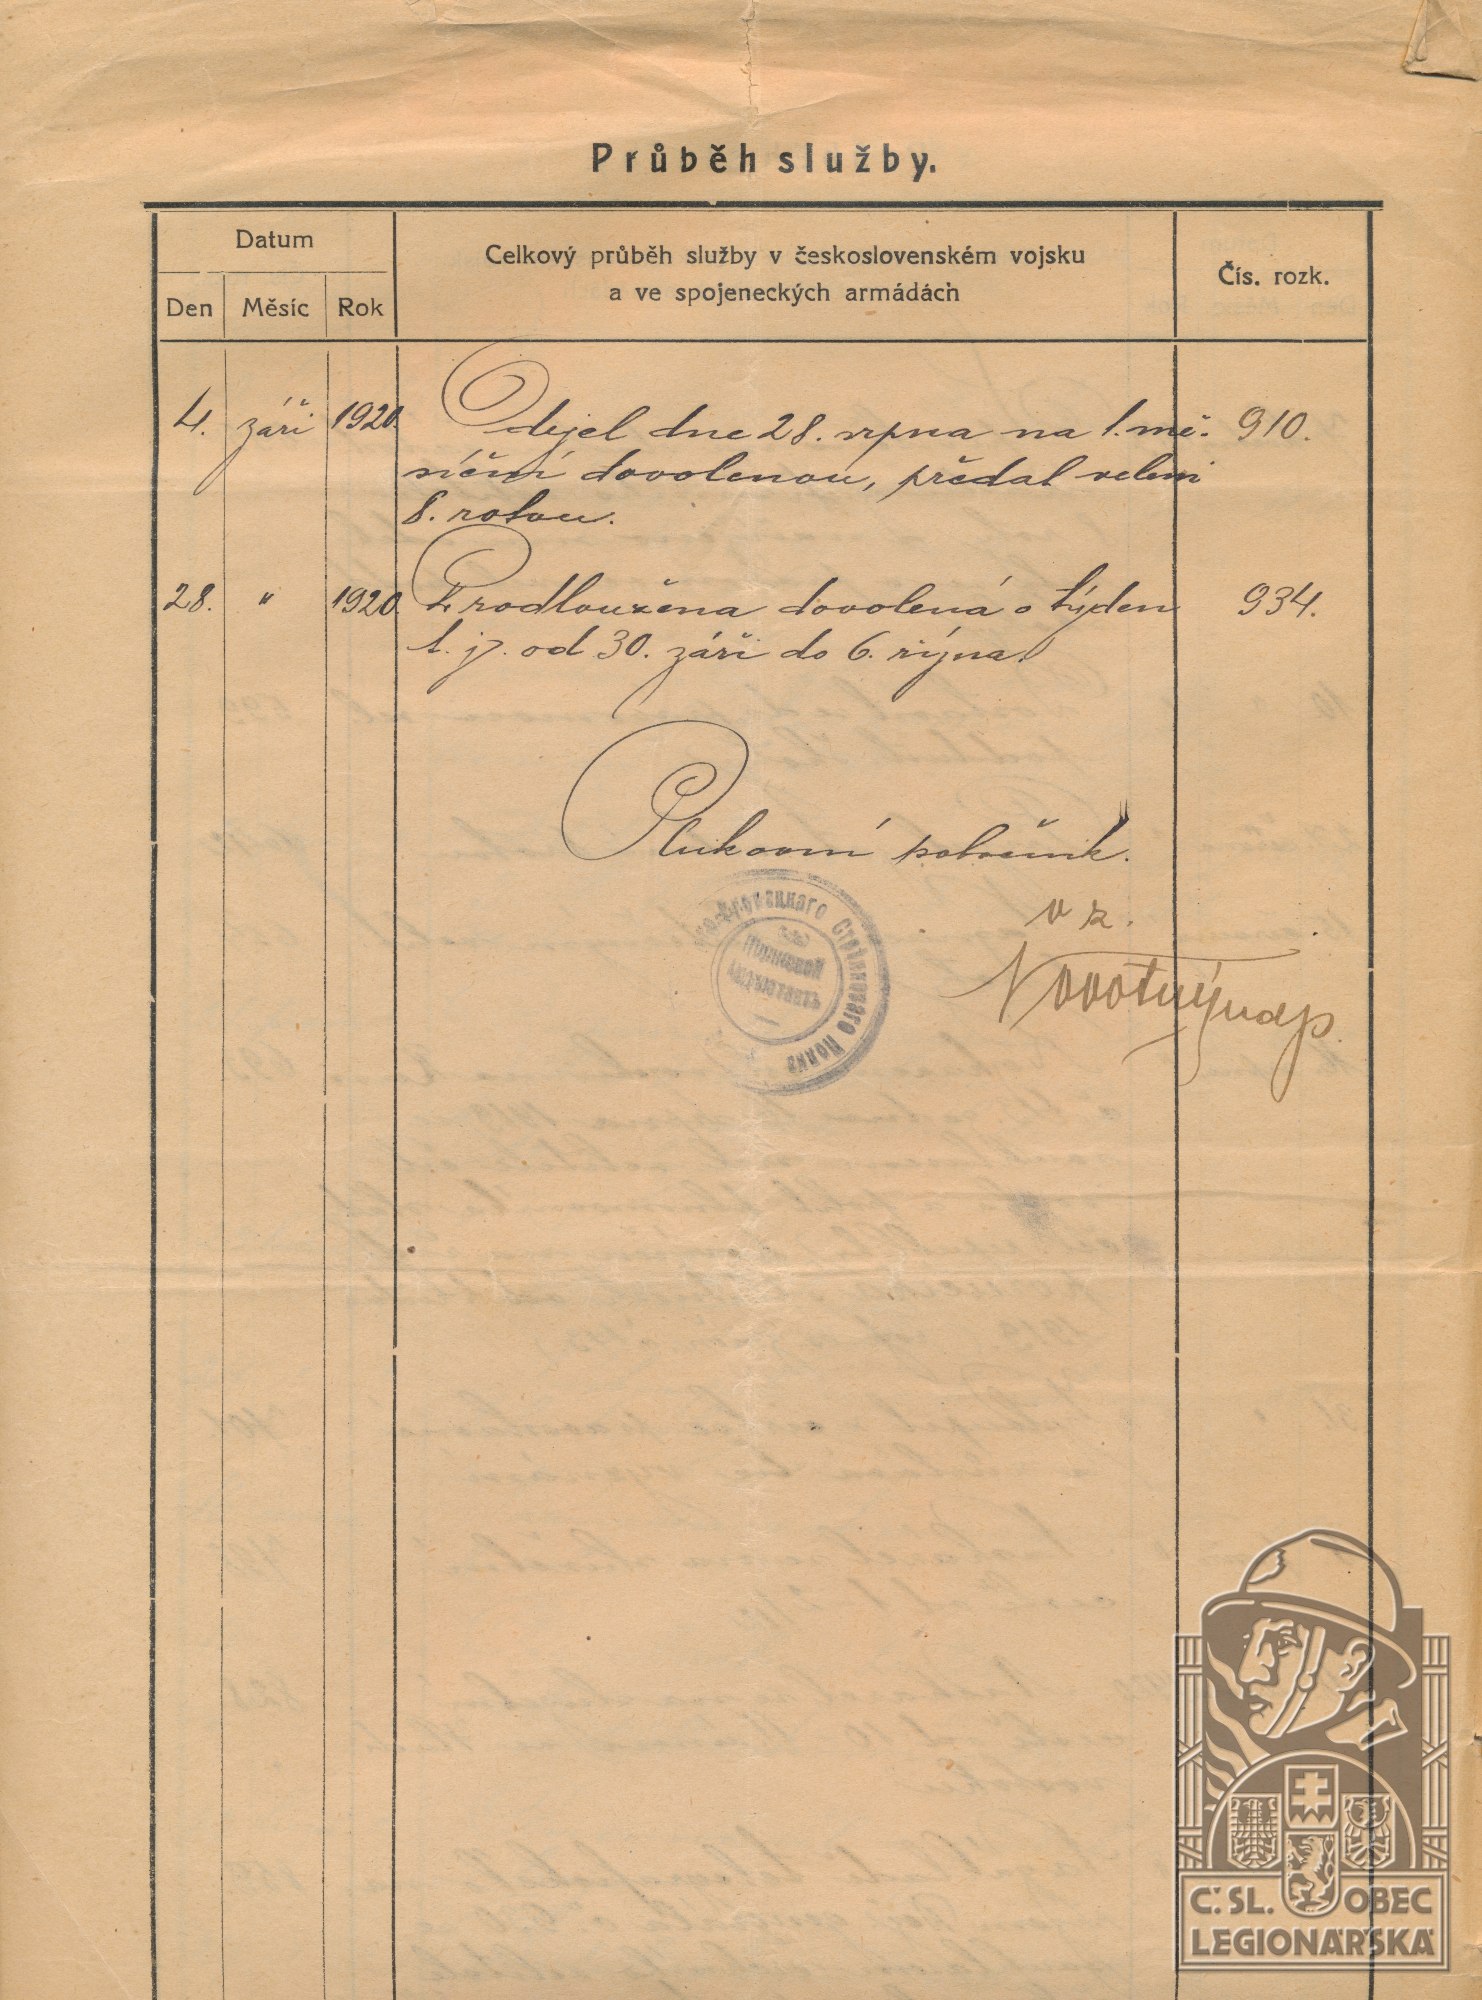 Průběh služby.
Datum
Den Měsíc Rok
Celkový průběh služby v československém vojsku
a ve spojeneckých armádách
Čís. rozk.
4. září 1920. Odejel dne 28. srpna na 1. mě- 910.
síční dovolenou, předal velení
8. rotou.
28. " 1920. Prodloužena dovolená o týden 934.
t. j. od 30. září do 6. října.
Plukovní pobočník.
v z.
Novotný
Стрѣлковаго Полка
Полковой
Č. SL. OBEC
LEGIONÁŘSKÁ